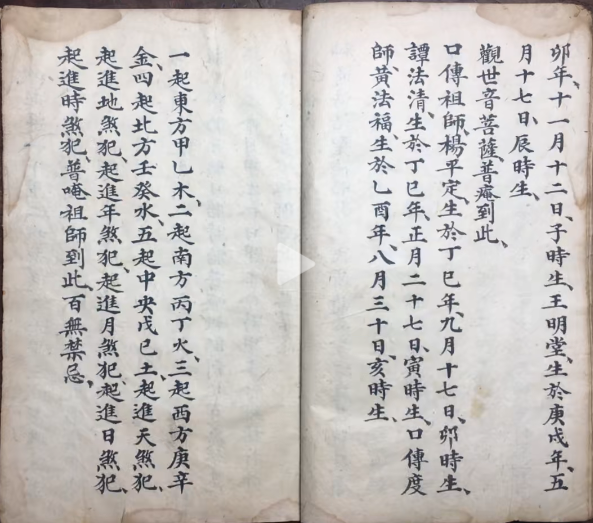 卯年、十一月十二日、子時生、王明堂、生於庚戌年、五
月十七日、辰時生、
觀世音菩薩、普庵到此、
口傳祖師、楊平定、生於丁巳年、九月十七日、卯時生、
譚法清、生於丁巳年、正月二十七日、寅時生、口傳度
師、黃法福、生於乙酉年、八月三十日、亥時生、
一起東方甲乙木、二起南方丙丁火、三起西方庚辛
金、四起北方壬癸水、五起中央戊己土、起進天煞犯、
起進地煞犯、起進年煞犯、起進月煞犯、起進日煞犯、
起進時煞犯、普唵祖師到此、百無禁忌、